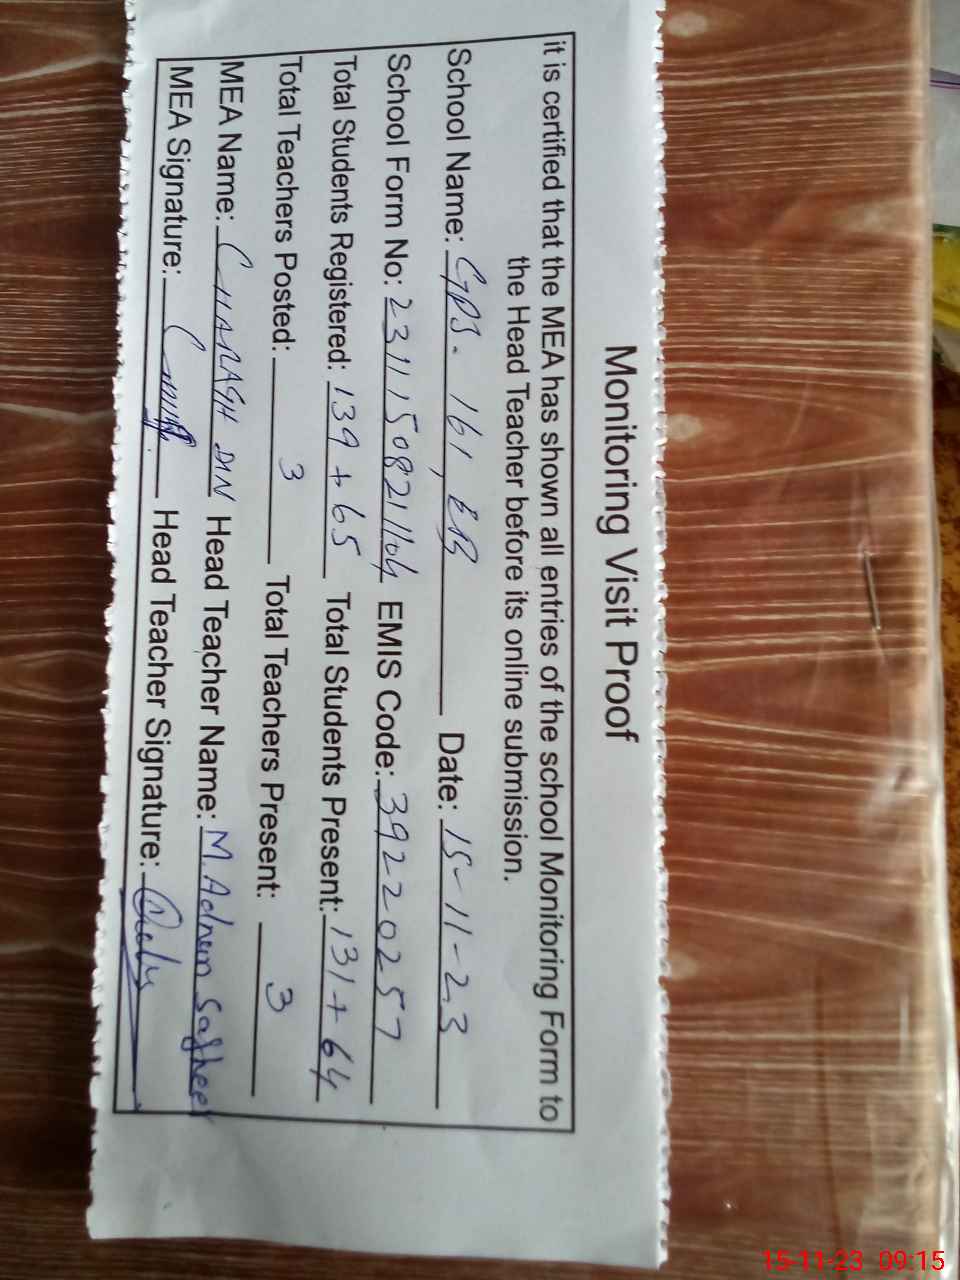 Monitoring Visit Proof
it is certified that the MEA has shown all entries of the school Monitoring Form to
the Head Teacher before its online submission.
School Name: GPS. 161, EB Date: 15-11-23
School Form No: 23111508211104 EMIS Code: 39220257
Total Students Registered: 139 + 65 Total Students Present: 131 + 64
Total Teachers Posted: 3 Total Teachers Present: 3
MEA Name: CHARAGH DIN Head Teacher Name: M. Adnan Sagheer
MEA Signature: Head Teacher Signature:
15-11-23 09:15